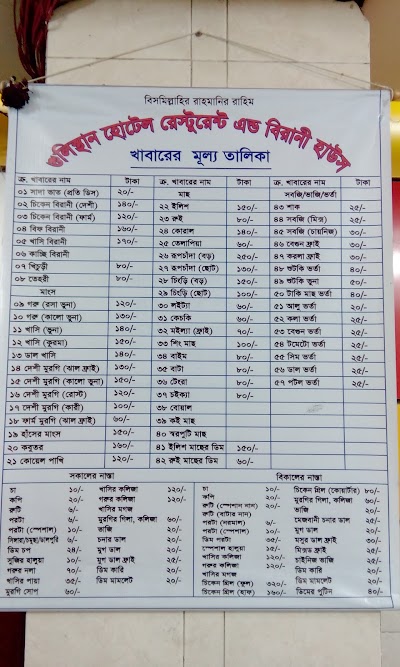 বিসমিল্লাহির রাহমানির রাহিম
গুলিস্থান হোটেল রেস্টুরেন্ট এন্ড বিরানী হাউস
খাবারের মূল্য তালিকা
ক্র. খাবারের নাম টাকা ক্র. খাবারের নাম টাকা ক্র. খাবারের নাম টাকা
০১ সাদা ভাত (প্রতি ডিস) ২০/- মাছ সবজি/ভাজি/ভর্তা
০২ চিকেন বিরানী (দেশী) ১৪০/- ২২ ইলিশ ১৫০/- ৪৩ শাক ২৫/-
০৩ চিকেন বিরানী (ফার্ম) ১২০/- ২৩ রুই ৮০/- ৪৪ সবজি (মিক্স) ২৫/-
০৪ বিফ বিরানী ১৬০/- ২৪ কোরাল ১৪০/- ৪৫ সবজি (চায়নিজ) ৩০/-
০৫ খাসি বিরানী ১৭০/- ২৫ তেলাপিয়া ৬০/- ৪৬ বেগুন ফ্রাই ৩০/-
০৬ কাচ্ছি বিরানী ২৬ রূপচাঁদা (বড়) ২৫০/- ৪৭ করলা ফ্রাই ৩০/-
০৭ খিচুড়ী ৮০/- ২৭ রূপচাঁদা (ছোট) ১৩০/- ৪৮ শুটকি ভর্তা ৪০/-
০৮ তেহরী ৮০/- ২৮ চিংড়ি (বড়) ১৫০/- ৪৯ শুটকি ভুনা ৫০/-
মাংস ২৯ চিংড়ি (ছোট) ১০০/- ৫০ টাকি মাছ ভর্তা ৪০/-
০৯ গরু (রসা ভুনা) ১২০/- ৩০ লইট্যা ৬০/- ৫১ আলু ভর্তা ২০/-
১০ গরু (কালো ভুনা) ১৩০/- ৩১ কেচকি ৬০/- ৫২ কলা ভর্তা ২৫/-
১১ খাসি (ভুনা) ১৪০/- ৩২ মইল্যা (ফ্রাই) ৭০/- ৫৩ বেগুন ভর্তা ২৫/-
১২ খাসি (কুরমা) ১৫০/- ৩৩ শিং মাছ ১০০/- ৫৪ টমেটো ভর্তা ২৫/-
১৩ ডাল খাসি ১৪০/- ৩৪ বাইম ৮০/- ৫৫ সিম ভর্তা ২৫/-
১৪ দেশী মুরগি (ঝাল ফ্রাই) ১৩০/- ৩৫ বাটা ৮০/- ৫৬ ডাল ভর্তা ২৫/-
১৫ দেশী মুরগি (কালো ভুনা) ১৫০/- ৩৬ টেংরা ৮০/- ৫৭ পটল ভর্তা ২৫/-
১৬ দেশী মুরগি (রোস্ট) ১২০/- ৩৭ চইক্যা ৮০/-
১৭ দেশী মুরগী (কারী) ১০০/- ৩৮ বোয়াল
১৮ ফার্ম মুরগি (ঝাল ফ্রাই) ৬০/- ৩৯ কই মাছ
১৯ হাঁসের মাংস ১৫০/- ৪০ স্বরপুটি মাছ
২০ কবুতর ১৬০/- ৪১ ইলিশ মাছের ডিম ১৫০/-
২১ কোয়েল পাখি ১২০/- ৪২ রুই মাছের ডিম ৬০/-
সকালের নাস্তা
চা ১০/- খাসির কলিজা ১২০/-
কপি ২০/- গরুর কলিজা ১২০/-
রুটি ৬/- খাসির মগজ
পরটা ৬/- মুরগির গিলা, কলিজা ৬০/-
পরটা (স্পেশাল) ১০/- ভাজি ২০/-
সিঙ্গারা/চমুছা/ডালপুরি ৬/- চনার ডাল ২০/-
ডিম চপ ২৪/- মুগ ডাল ২০/-
সুজির হালুয়া ১০/- মুগ ডাল ফ্রাই ২৫/-
গরুর নলা ৭০/- ডিম কারি ২০/-
খাসির পায়া ৩৫/- ডিম মামলেট ২০/-
মুরগি সোপ ৬০/-
বিকালের নাস্তা
চা ১০/- চিকেন গ্রিল (কোয়ার্টার) ৮০/-
কপি ২০/- মুরগির গিলা, কলিজা ৬০/-
রুটি (স্পেশাল নান) ২০/- ভাজি ২০/-
রুটি (বাটার নান) মেজবানী চনার ডাল ২৫/-
পরটা (নরমাল) ৬/- মুগ ডাল ২০/-
পরটা (স্পেশাল) ১০/- মসুর ডাল ফ্রাই ৩০/-
ডিম পরটা ৩৫/- মিক্সড ফ্রাই ২৫/-
স্পেশাল হালুয়া ১৫/- চাইনিজ ভাজি ২৫/-
খাসির কলিজা ১২০/- ডিম কারি ২০/-
গরুর কলিজা ১২০/- ডিম মামলেট ২০/-
খাসির মগজ ডিমের পুটিন ৪০/-
চিকেন গ্রিল (ফুল) ৩২০/-
চিকেন গ্রিল (হাফ) ১৬০/-